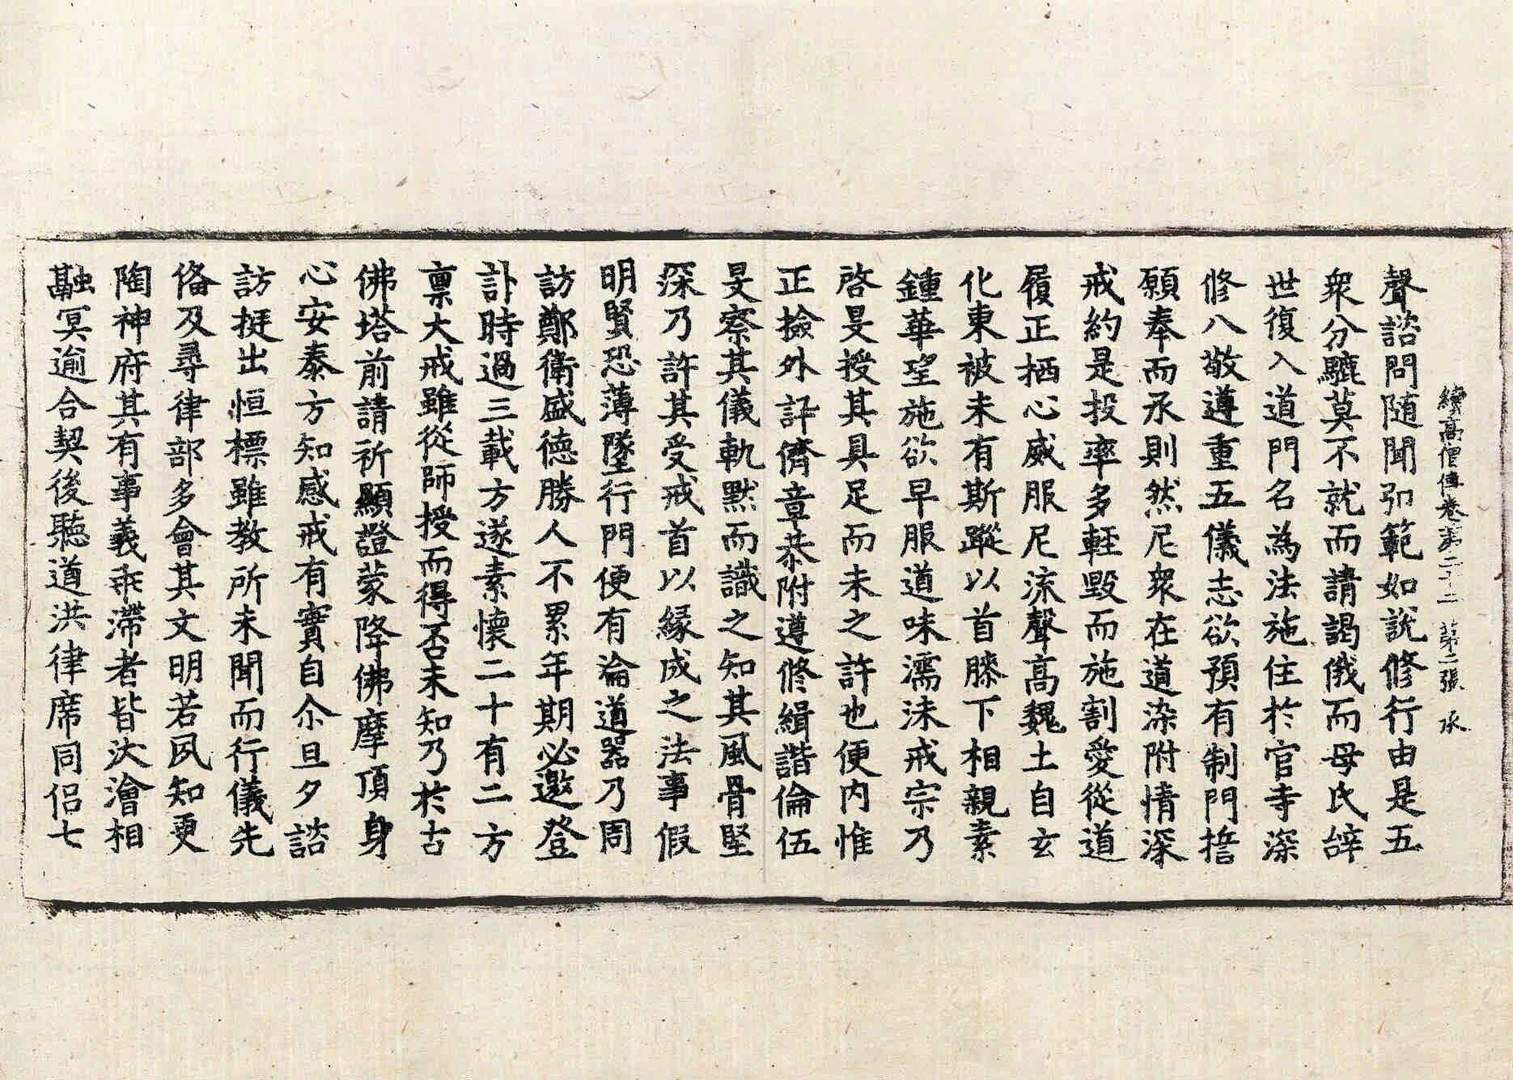 續高僧傳卷第二十二 第二張 承
聲諮問随聞引範如說修行由是五
衆分驪莫不就而請謁俄而母氏辝
世復入道門名為法施住於官寺深
修八敬遵重五儀志欲預有制門擔
願奉而承則然尼衆在道染附情深
戒約是投率多輕毀而施割愛從道
履正栖心威服尼流聲高魏土自玄
化東被未有斯蹤以首膝下相親素
鍾華望施欲早服道味濡沫戒宗乃
啓旻授其具足而未之許也便內惟
正撿外評儕章恭附遵修緝諧倫伍
旻察其儀軌黙而識之知其風骨堅
深乃許其受戒首以緣成之法事假
明賢恐薄墜行門便有淪道器乃周
訪鄭衛盛德勝人不累年期必邀登
訃時過三載方遂素懷二十有二方
稟大戒雖從師授而得否未知乃於古
佛塔前請祈顯證蒙降佛摩頂身
心安泰方知感戒有實自尒旦夕諮
訪挺出恒標雖教所未聞而行儀先
俻及尋律部多會其文明若夙知更
陶神府其有事義乖滯者皆汰澮相
融冥逾合契後聽道洪律席同侶七